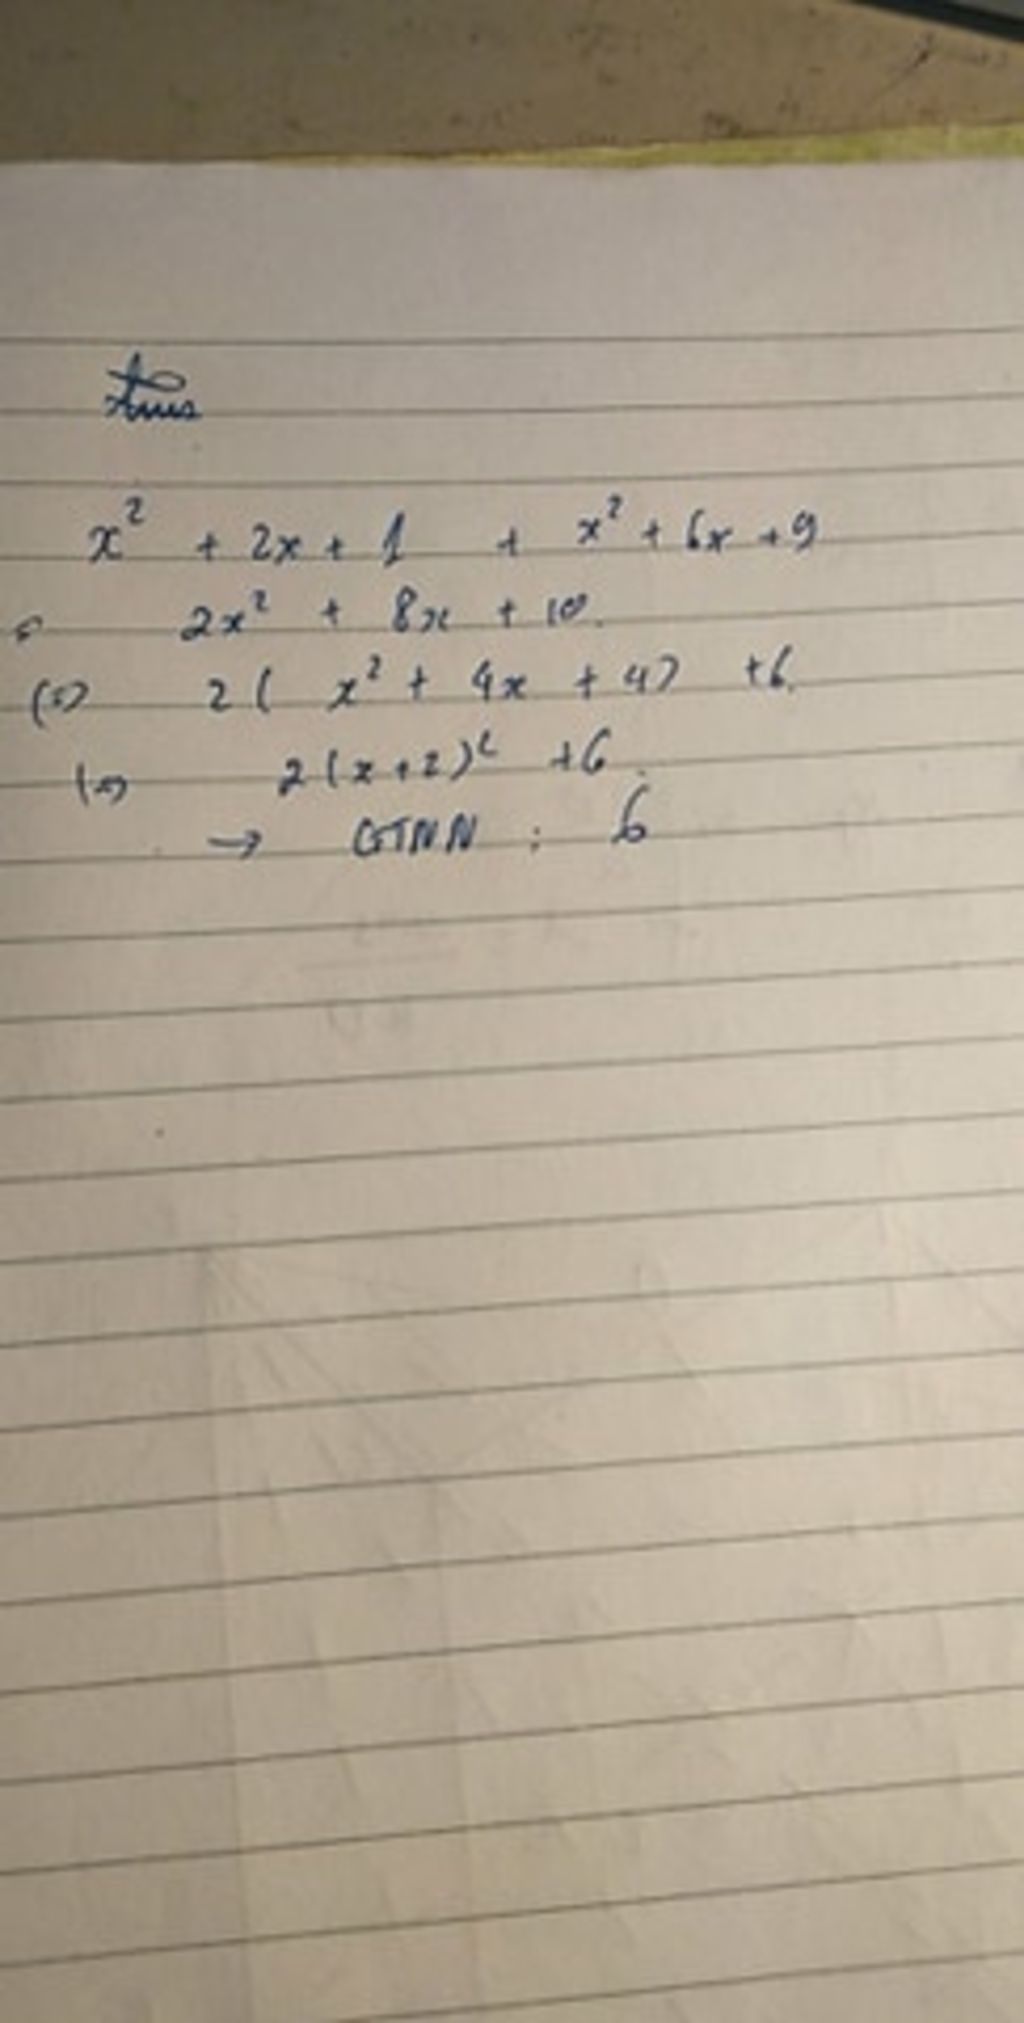 Ans
x² + 2x + 1 + x² + 6x + 9
= 2x² + 8x + 10.
(=) 2( x² + 4x + 4) +6.
(=) 2(x+2)² +6.
→ GTNN : 6